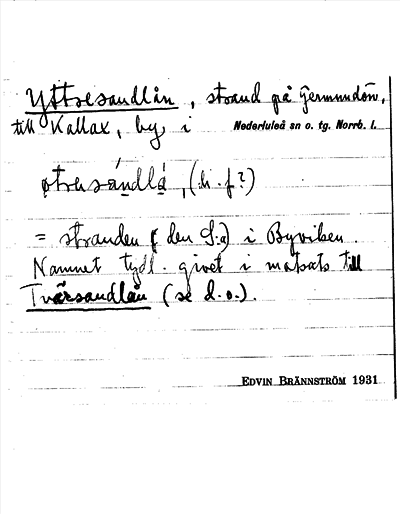 Yttresandlån, strand på Germundön,
till Kallax, by i Nederluleå sn o. tg. Norrb. l.
øtresándlá, (b. f?)
= stranden (den S.a) i Byviken.
Namnet tydl. givet i motsats till
Tvärsandlån (se d. o.).
EDVIN BRÄNNSTRÖM 1931